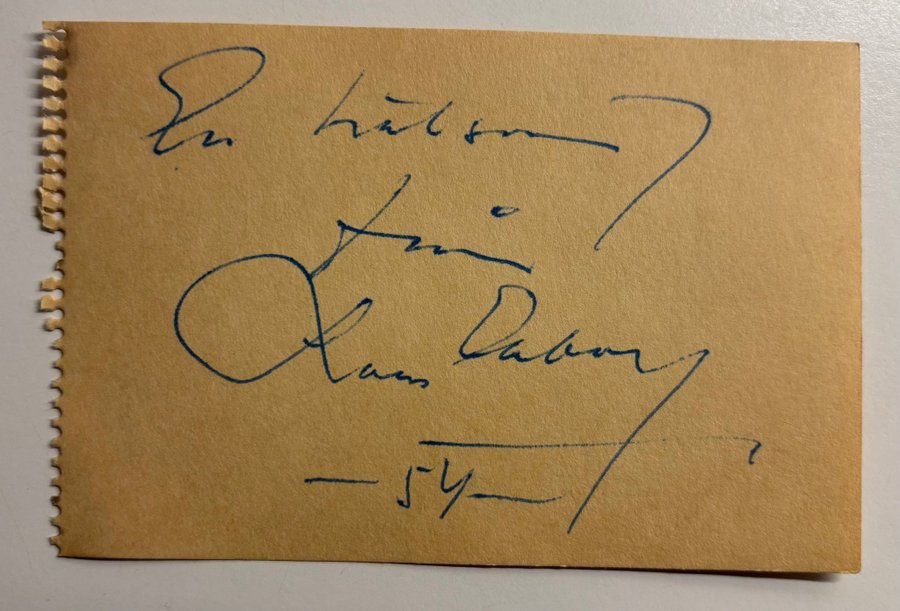 En hälsning
från
Hans
— 54 —